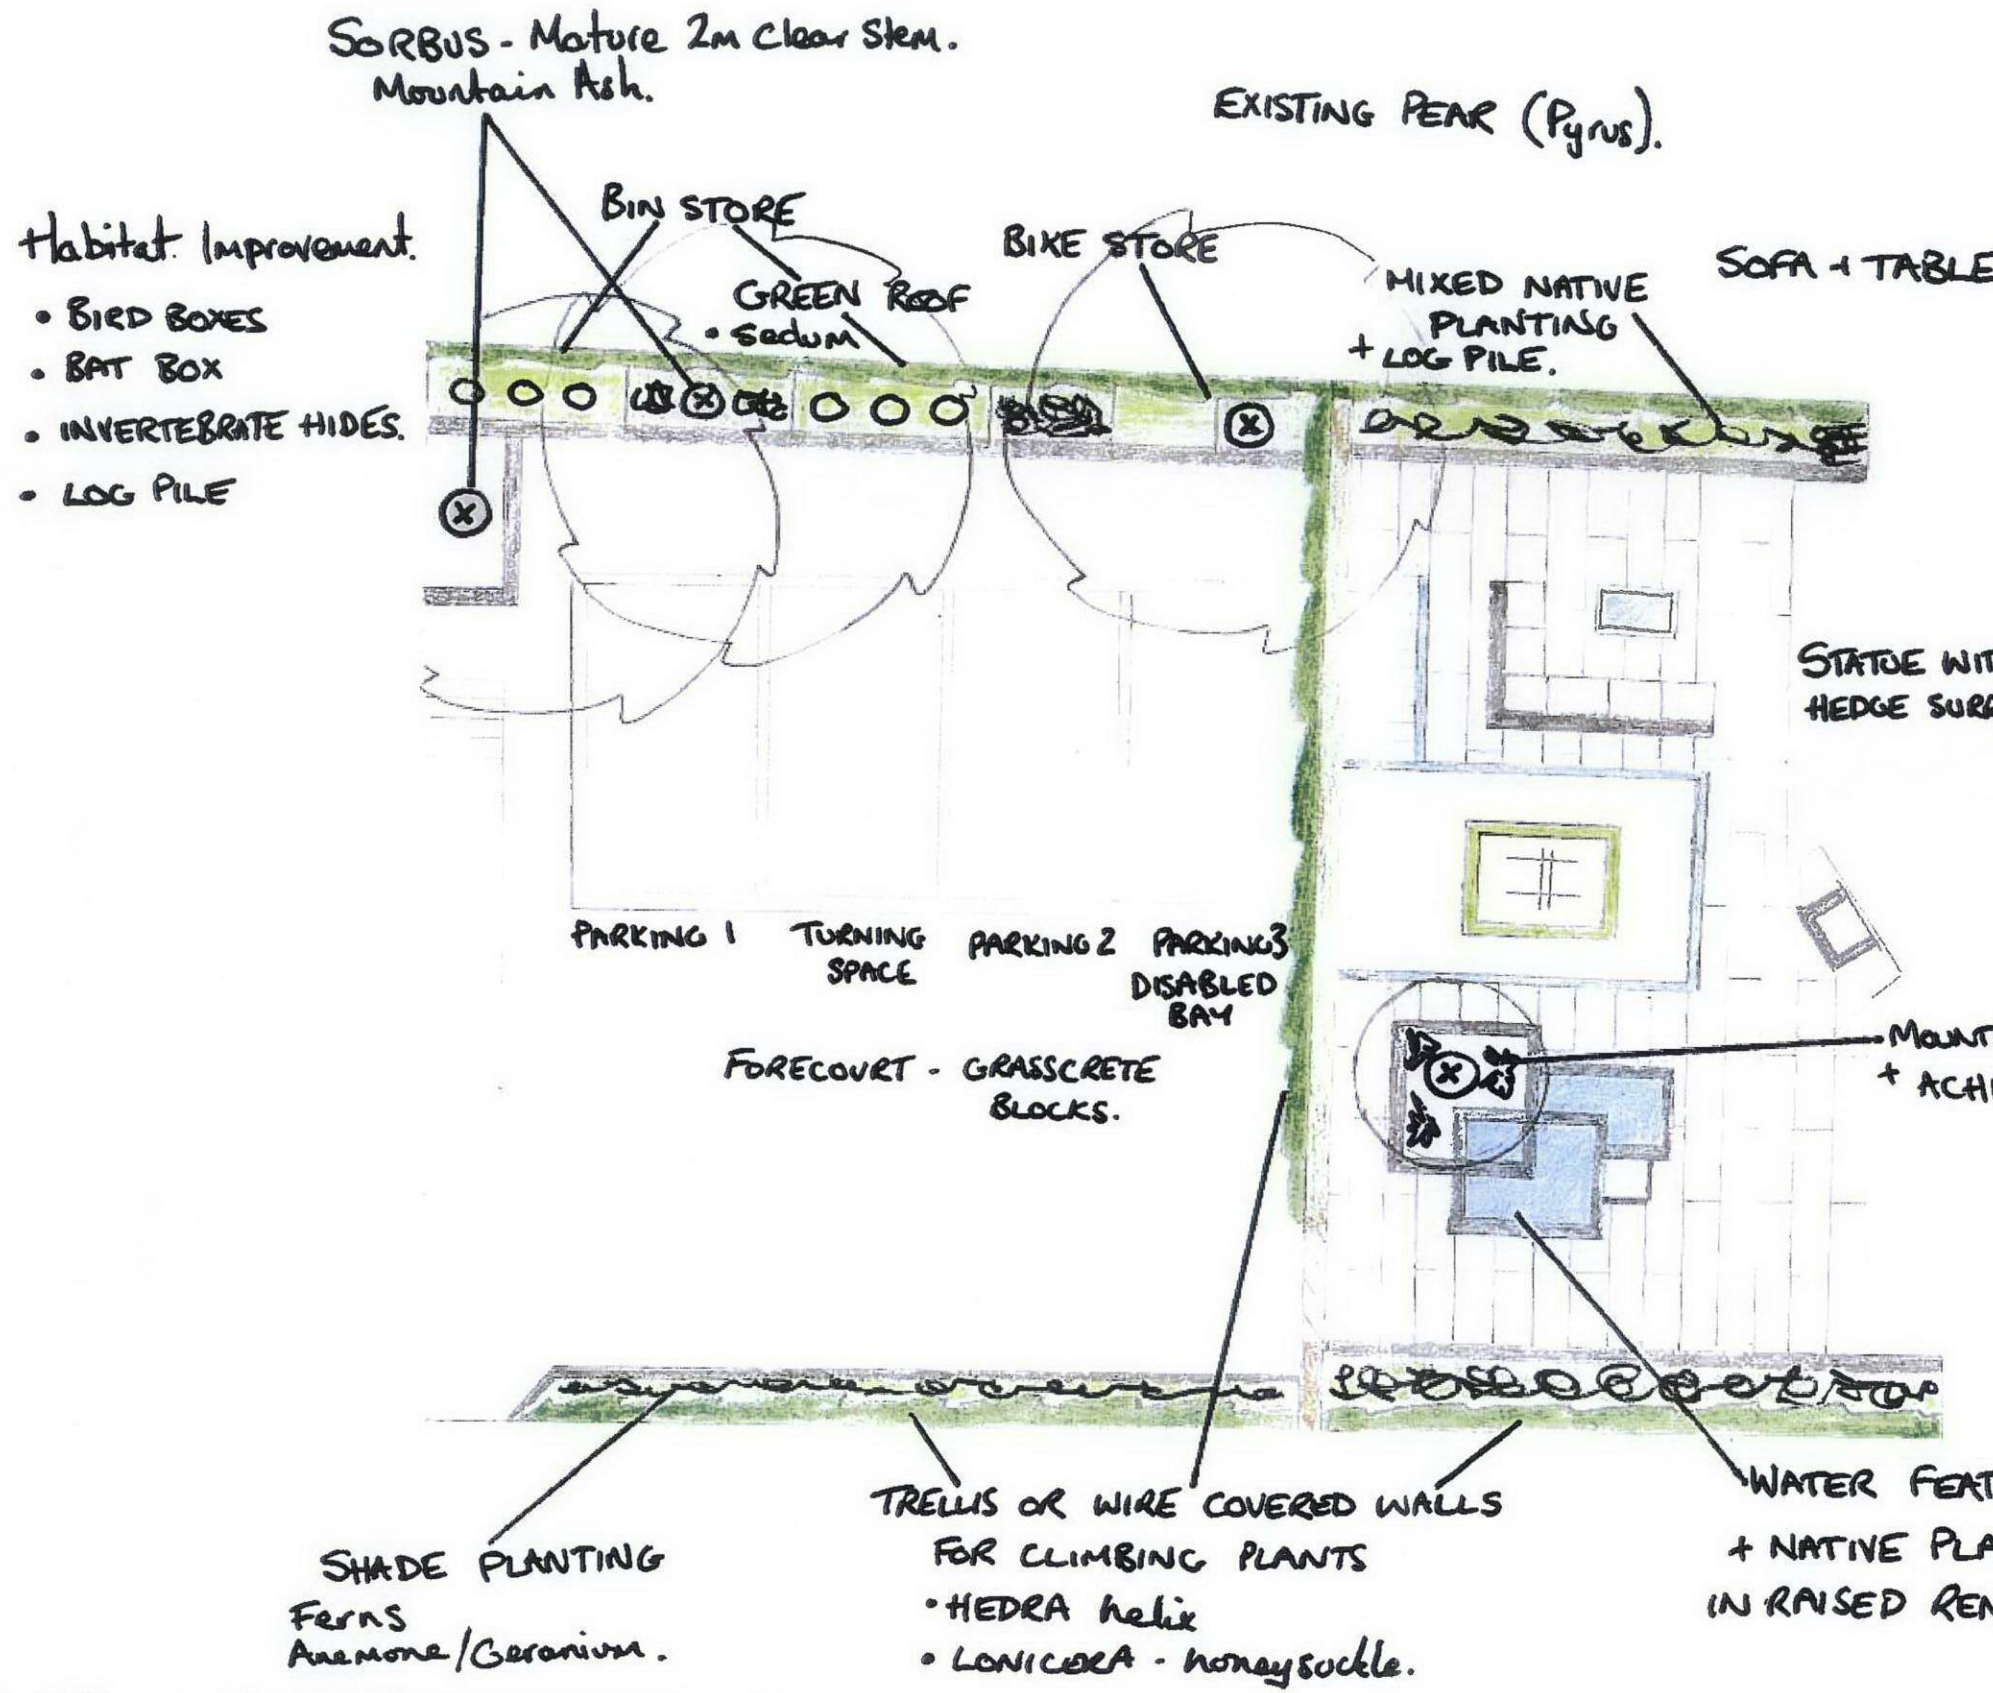 SORBUS - Mature 2m Clear Stem.
Mountain Ash.
EXISTING PEAR (Pyrus).
Habitat Improvement.
• BIRD BOXES
• BAT BOX
• INVERTEBRATE HIDES.
• LOG PILE
BIN STORE
GREEN ROOF
• Sedum
BIKE STORE
MIXED NATIVE
PLANTING
+ LOG PILE.
SOFA + TABLE
STATUE WIT
HEDGE SURR
PARKING 1
TURNING
SPACE
PARKING 2
PARKING 3
DISABLED
BAY
FORECOURT - GRASSCRETE
BLOCKS.
MOUNT
+ ACHI
SHADE PLANTING
Ferns
Anemone/Geranium.
TRELLIS OR WIRE COVERED WALLS
FOR CLIMBING PLANTS
• HEDRA helix
• LONICERA - honeysuckle.
WATER FEAT
+ NATIVE PLA
IN RAISED REN